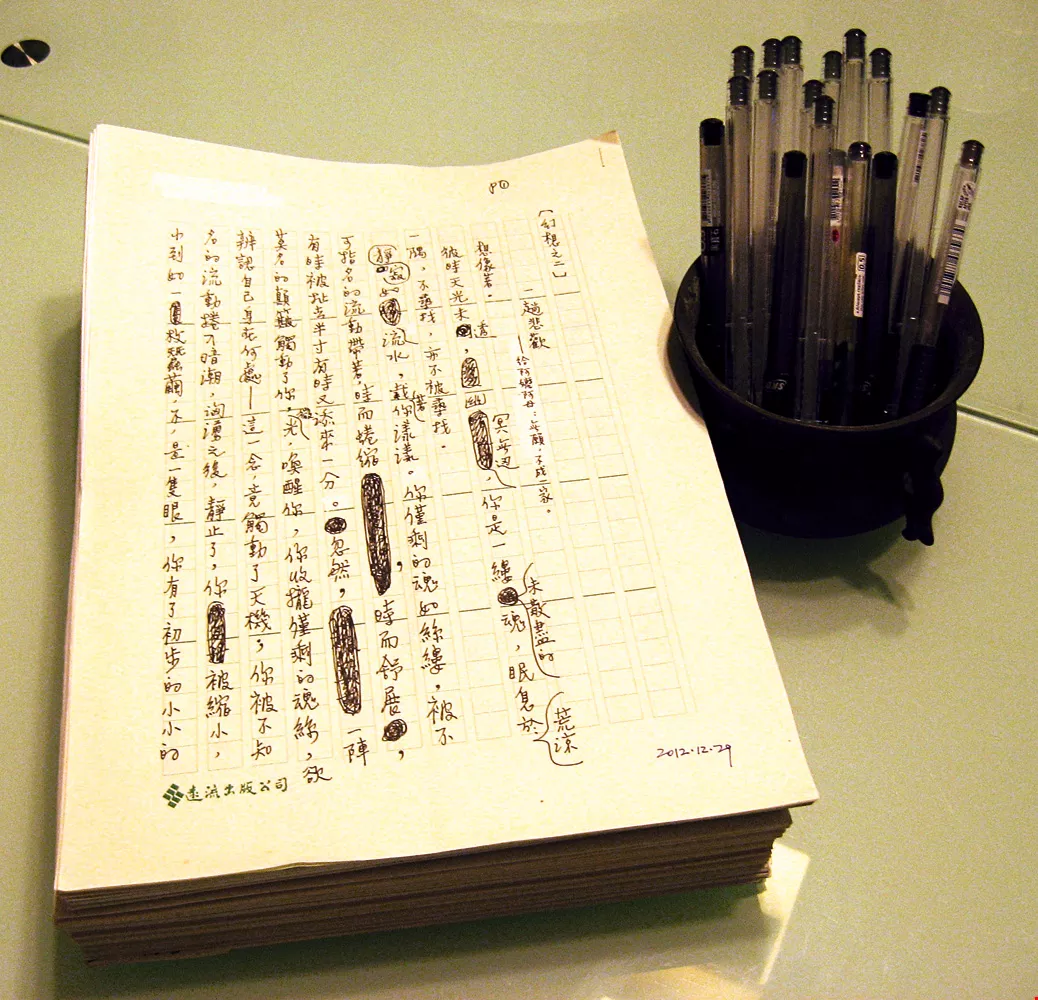 p①
[幻想之二]
一趟悲歡
想像著。
彼時天光未透，幽冥無邊，你是一縷未散盡的魂，眠息於荒涼
一隅，不尋找，亦不被尋找。
靜寂如流水，載著你漾漾。你僅剩的魂如絲縷，被不
可指名的流動帶著，時而蜷縮，時而舒展，
有時被扯去半寸有時又添來一分。忽然，一陣
莫名的顛簸觸動了你，光，喚醒你，你收攏僅剩的魂絲，欲
辨認自己身在何處——這一念，竟觸動了天機，你被不知
名的流動捲入暗潮，洶湧之後，靜止了，你被縮小，
小到如一枚蠶繭，不，是一隻眼，你有了初步的小小的
2012.12.29
遠流出版公司
0.5